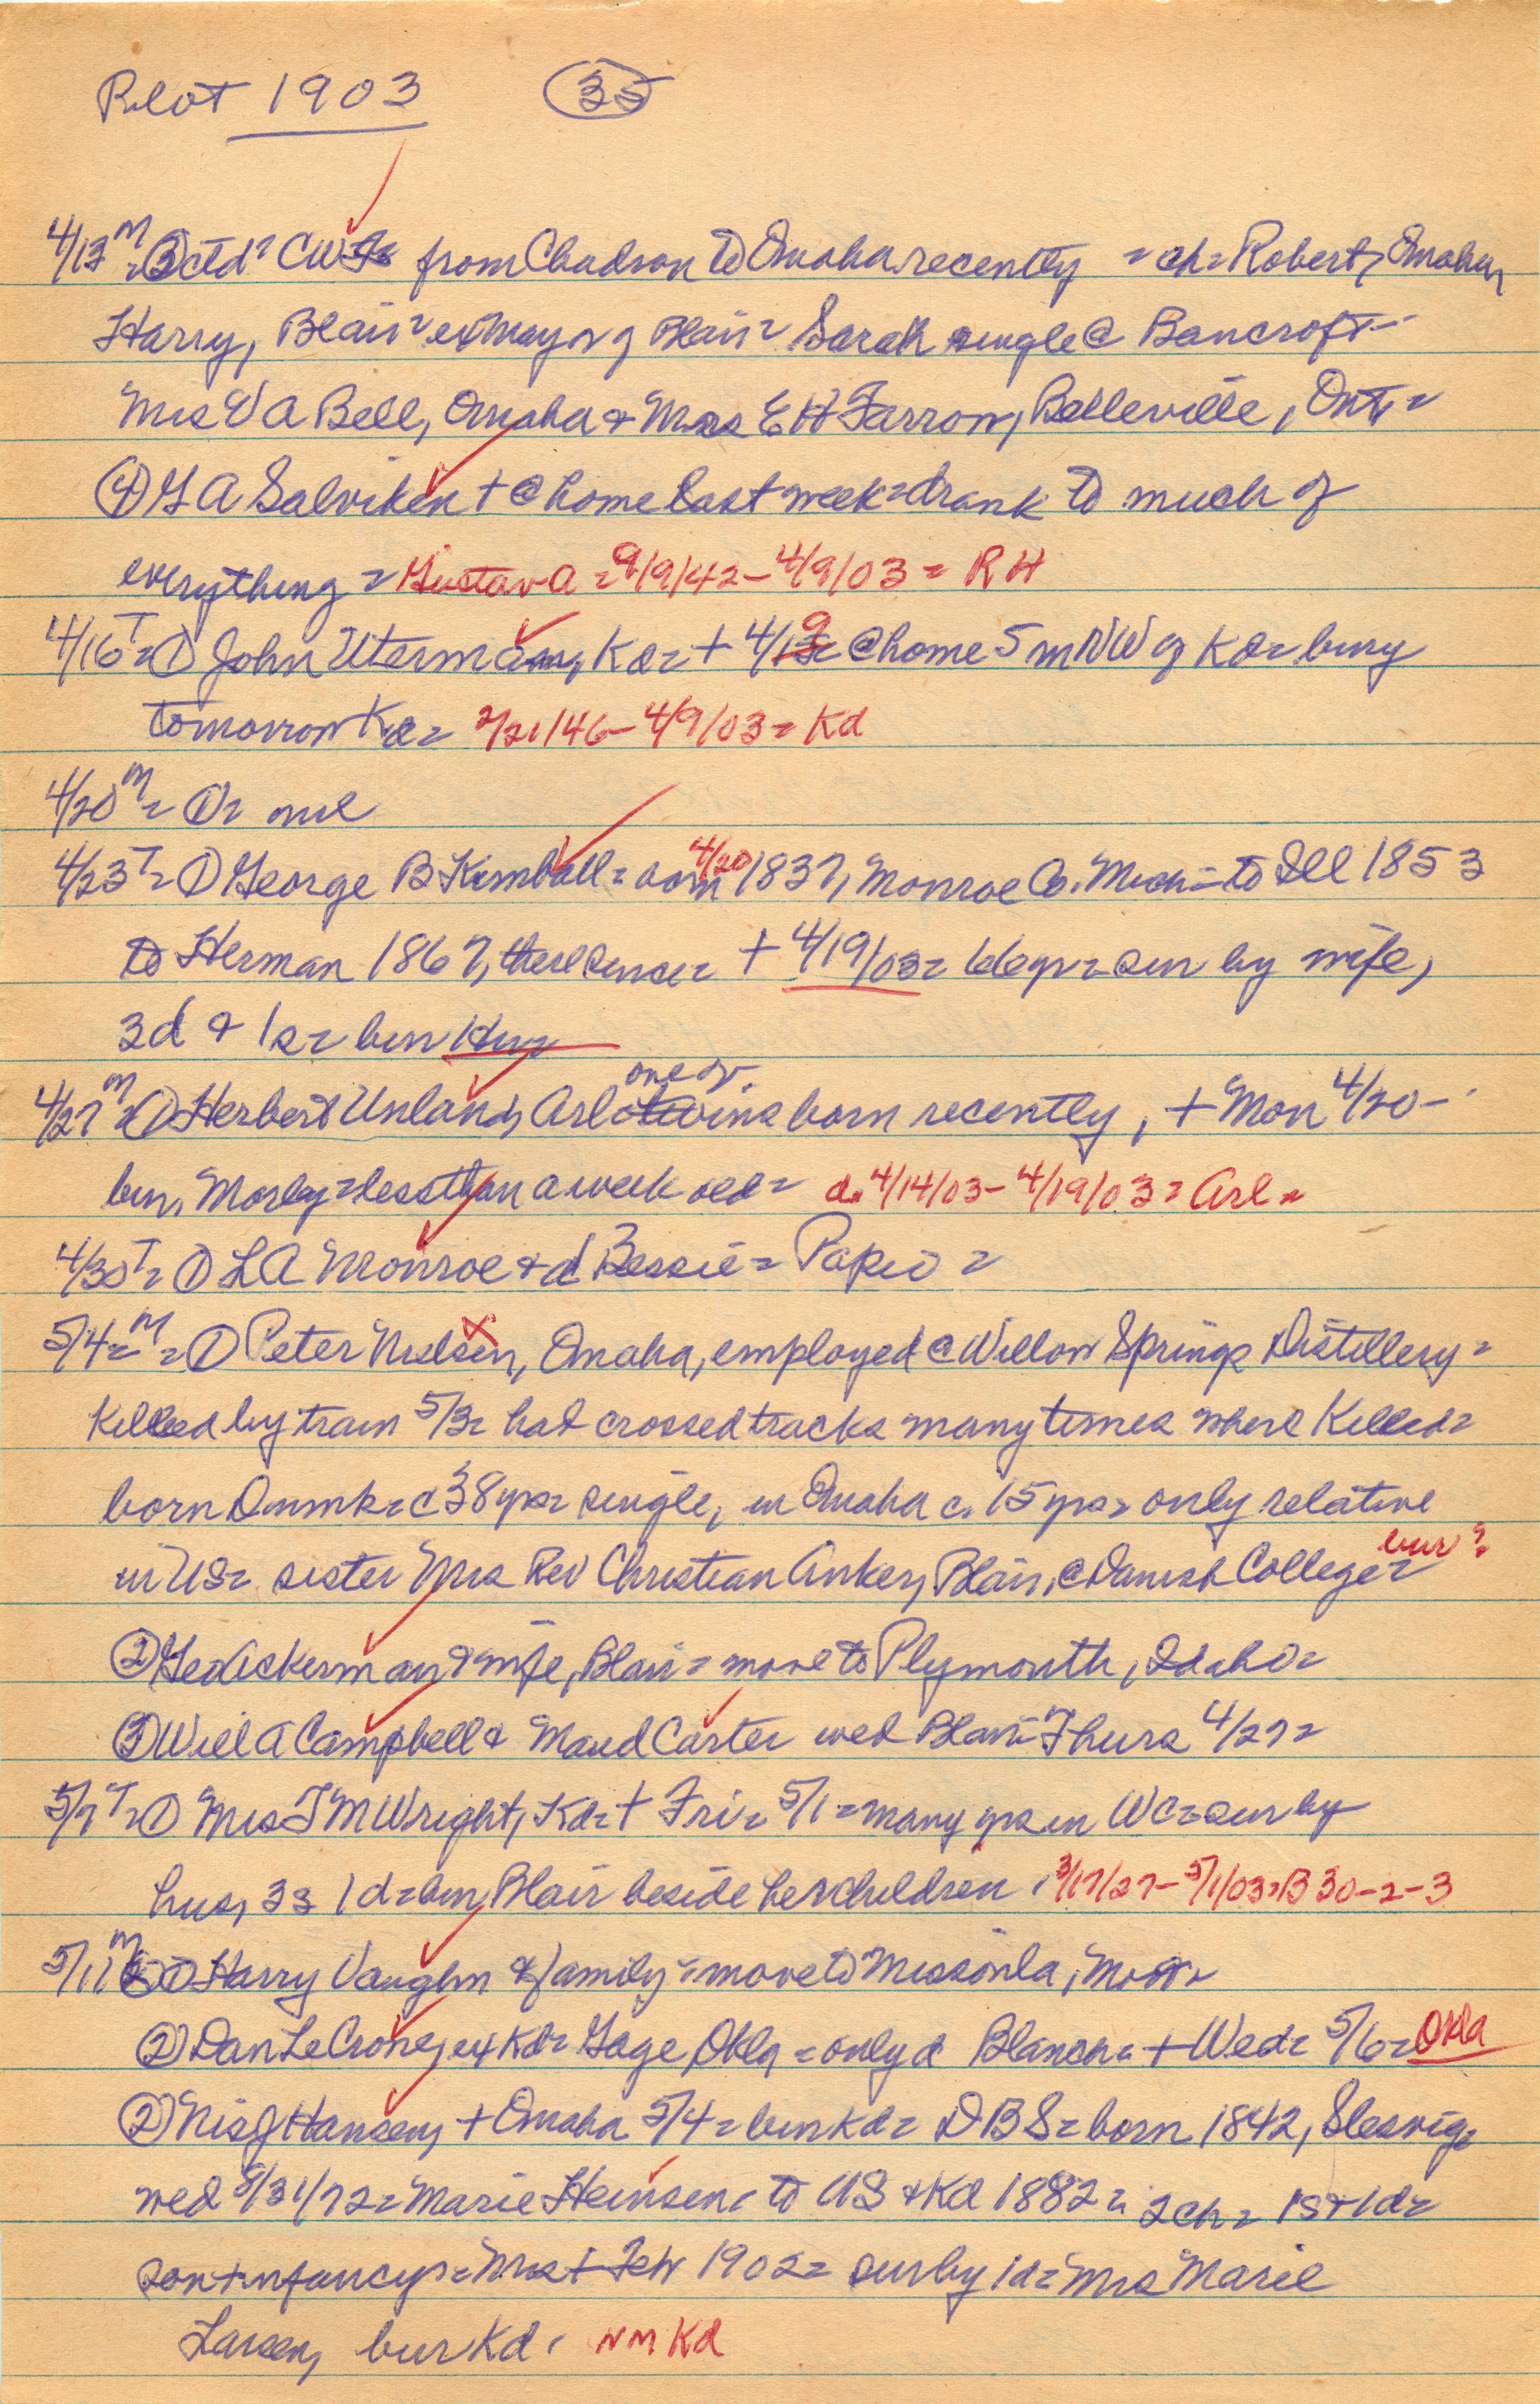 Pilot 1903 (35)
4/13 M = ③ ctd = CW from Chadron to Omaha recently = ch = Robert, Omaha,
Harry, Blair = ex Mayor of Blair = Sarah single @ Bancroft -
Mrs V A Bell, Omaha & Mrs E H Farrow, Belleville, Ont =
④ G A Salviken + @ home last week = drank to much of
everything = Gustav A = 9/9/42 - 4/9/03 = RH
4/16 T = ① John Uterman, Kd = + 4/9 = @ home 5 m NW of Kd = bury
tomorrow Kd = 2/21/46 - 4/9/03 = Kd
4/20 M = ① =
4/23 T = ① George B Kimball = born 4/20 1837, Monroe Co. Mich = to Ill 1853
to Herman 1867, there since = + 4/19/03 = 66 yrs = sur by wife,
3d & 1s = bur Her
4/27 M = ① Herbert Unland, Arl one of twins born recently, + Mon 4/20 -
bur, Morley = less than a week old = d. 4/14/03 - 4/19/03 = Arl =
4/30 T = ① L A Monroe & d Bessie = Papio =
5/4 = M = ① Peter Nielsen, Omaha, employed @ Willow Springs Distillery =
Killed by train 5/3 = had crossed tracks many times where Killed =
born Dnmk = c 38 yrs = single, in Omaha c. 15 yrs, only relative
in US = sister Mrs Rev Christian Anker, Blair, @ Danish College = bur?
② Geo Ackerman & wife, Blair = move to Plymouth, Idaho =
③ Will A Campbell & Maud Carter wed Blair Thurs 4/27 =
5/7 T = ① Mrs T M Wright, Kd = + Fri = 5/1 = many yrs in WC = sur by
hus, 3s 1d = bur, Blair beside her children, 3/17/27 - 5/1/03 = B 30-2-3
5/11 M ① Harry Vaughn & family = move to Missoula, Mont =
② Dan LeCrone, ex Kd = Gage, Okla = only d Blanch = + Wed = 5/6 = Okla
② Nis J Hansen, + Omaha 5/4 = bur Kd = DBS = born 1842, Slesvig =
wed 8/31/72 = Marie Heinsen = to US & Kd 1882 = 2 ch = 1s & 1d =
son + infancy = Mrs + Feb 1902 = sur by 1d = Mrs Marie
Larsen, bur Kd. NM Kd